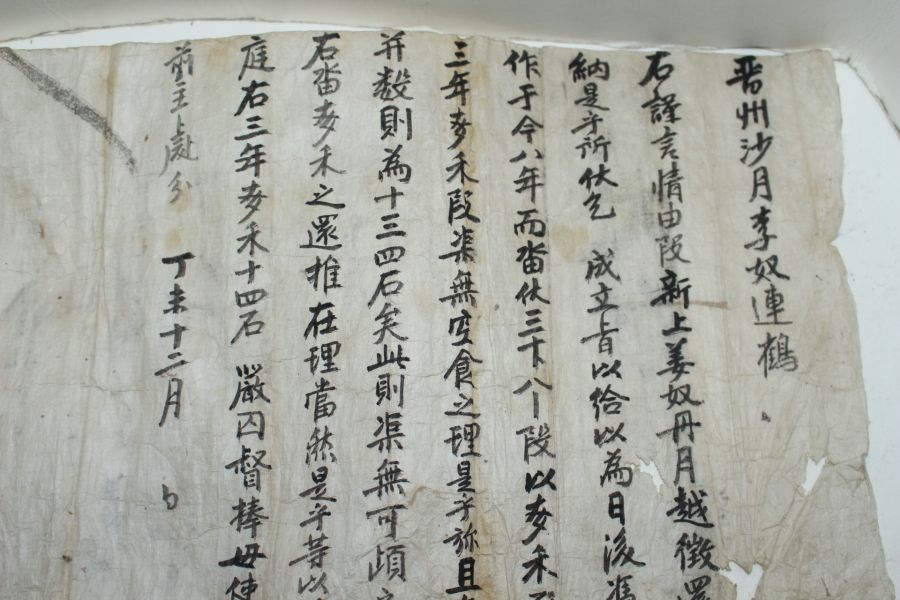 晋州沙月李奴連鶴
右謹言情由段新上姜奴丹月越徵還
納是乎所伏乞 成立旨以給以為日後憑
作于今八年而畓伏三十八卜段以麥禾
三年麥禾段渠無空食之理是乎旀且
并数則為十三四石矣此則渠無可頉
右畓麥禾之還推在理當然是乎等以
庭右三年麥禾十四石 嚴囚督捧毋使
前主處分
丁未十二月 日